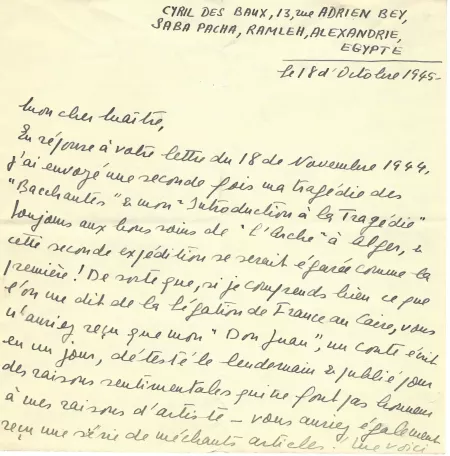 CYRIL DES BAUX, 13, rue ADRIEN BEY,
SABA PACHA, RAMLEH, ALEXANDRIE,
EGYPTE
le 18 d'Octobre 1945-
Mon cher Maître,
En réponse à votre lettre du 18 de Novembre 1944,
j'ai envoyé une seconde fois ma tragédie des
"Bacchantes" & mon "Introduction à la Tragédie"
toujours aux bons soins de "l'Arche" à Alger, &
cette seconde expédition se serait égarée comme la
première! De sorte que, si je comprends bien ce que
l'on me dit de la légation de France au Caire, vous
n'auriez reçu que mon "Don Juan", un conte écrit
en un jour, détesté le lendemain & publié pour
des raisons sentimentales qui ne font pas honneur
à mes raisons d'artiste – vous auriez également
reçu une série de méchants articles. Me voici